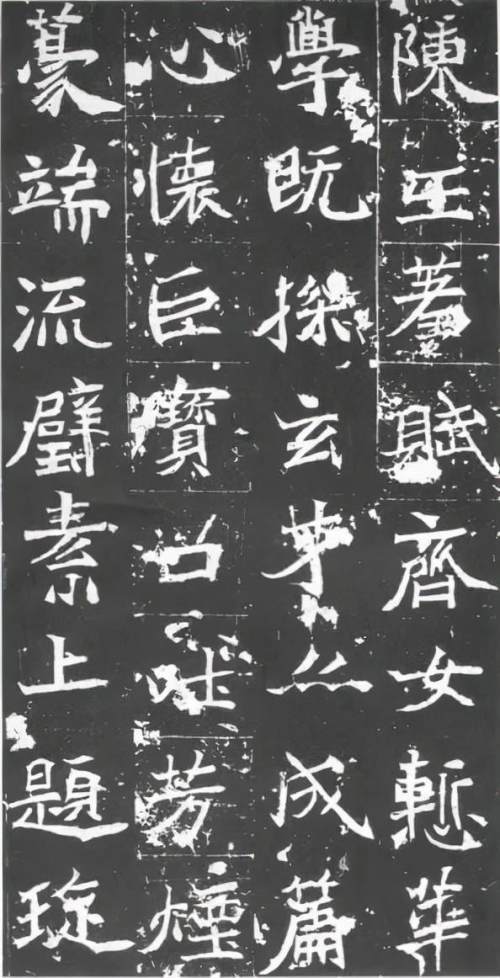 陳王著賦齊女慙華
學既探玄才亦成篇
心懷巨寶口吐芳煙
毫端流璧素上題琁